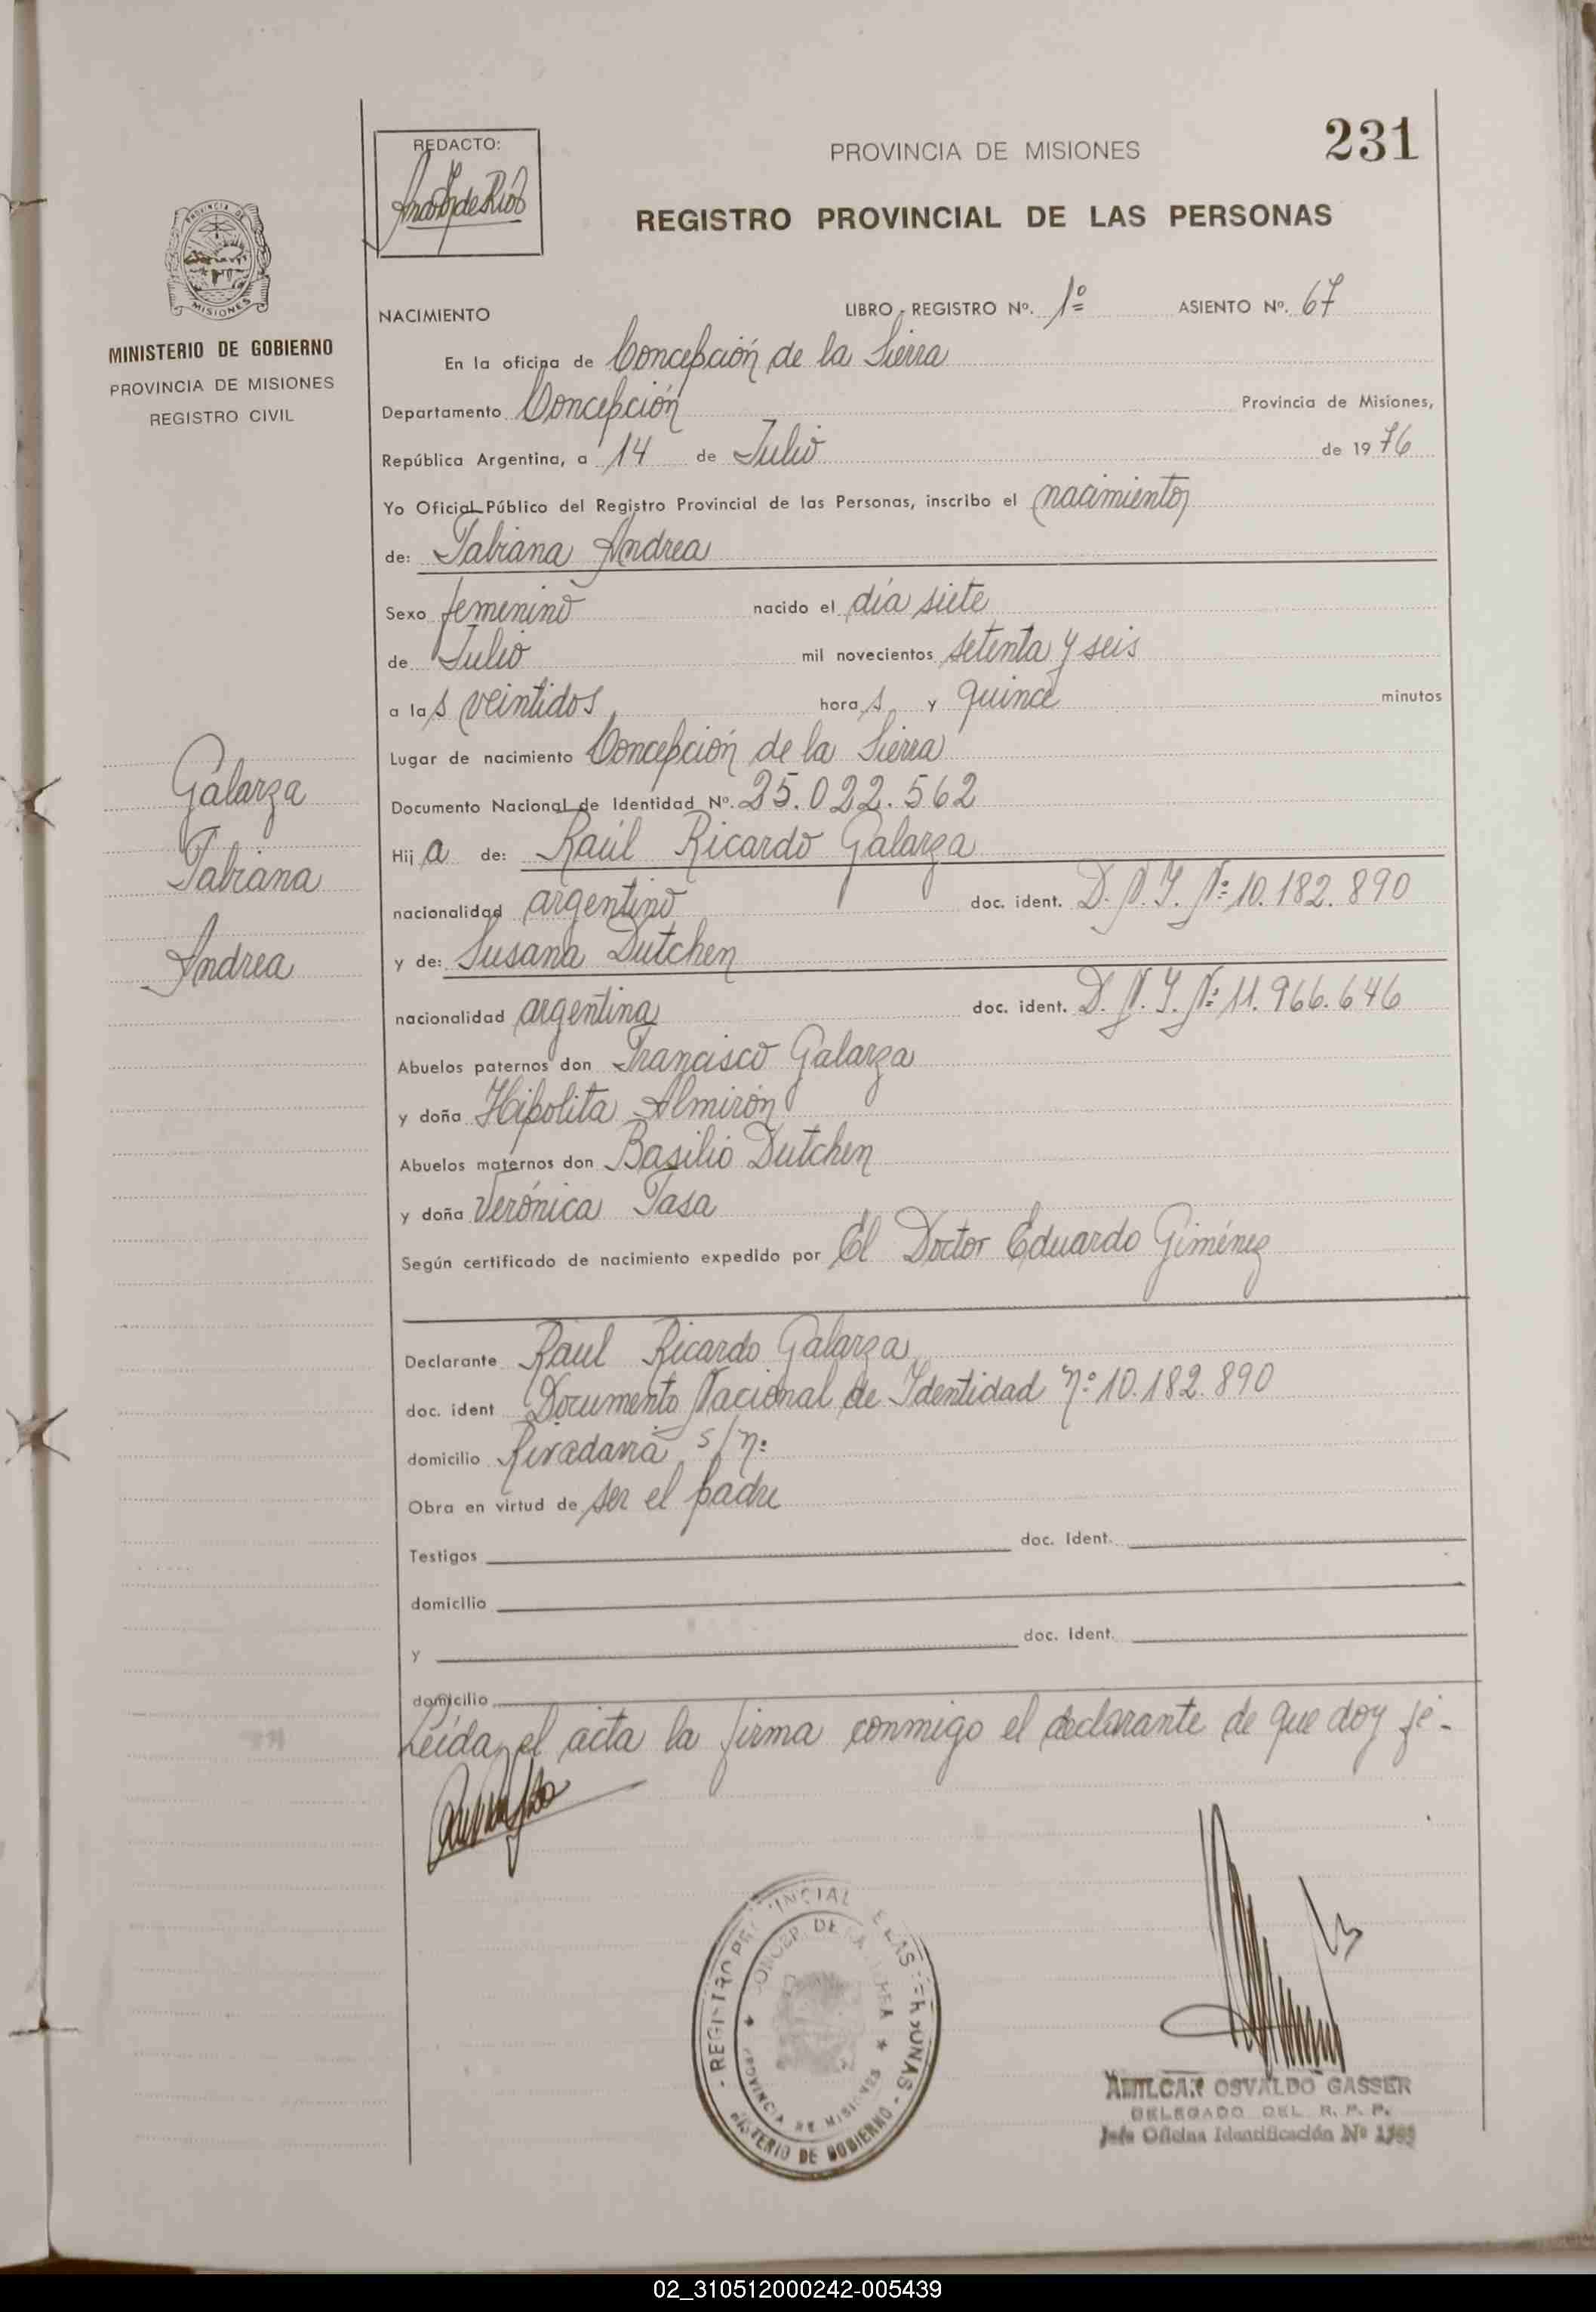 231
REDACTO:
PROVINCIA DE MISIONES
REGISTRO PROVINCIAL DE LAS PERSONAS
MISIONES
MINISTERIO DE GOBIERNO
PROVINCIA DE MISIONES
REGISTRO CIVIL
NACIMIENTO LIBRO - REGISTRO Nº. 1º ASIENTO Nº. 67
En la oficina de Concepción de la Sierra
Departamento Concepción Provincia de Misiones,
República Argentina, a 14 de Julio de 1976
Yo Oficial Público del Registro Provincial de las Personas, inscribo el nacimiento
de: Fabiana Andrea
Sexo femenino nacido el día siete
de Julio mil novecientos setenta y seis
a las veintidos horas y quince minutos
Lugar de nacimiento Concepción de la Sierra
Galarza
Fabiana
Andrea
Documento Nacional de Identidad Nº. 25.022.562
Hija de: Raúl Ricardo Galarza
nacionalidad argentino doc. ident. D.N.I. Nº 10.182.890
y de: Susana Dutchen
nacionalidad argentina doc. ident. D.N.I. Nº 11.966.646
Abuelos paternos don Francisco Galarza
y doña Hipolita Almirón
Abuelos maternos don Basilio Dutchen
y doña Verónica Tasa
Según certificado de nacimiento expedido por El Doctor Eduardo Giménez
Declarante Raul Ricardo Galarza
doc. ident Documento Nacional de Identidad nº 10.182.890
domicilio Rivadavia s/nº
Obra en virtud de ser el padre
Testigos doc. Ident.
domicilio
y doc. Ident.
domicilio
Leída el acta la firma conmigo el declarante de que doy fé-
REGISTRO PROVINCIAL DE LAS PERSONAS
MINISTERIO DE GOBIERNO
PROVINCIA DE MISIONES
AMILCAR OSVALDO GASSER
DELEGADO DEL R. P. P.
Jefe Oficina Identificación Nº
02_310512000242-005439